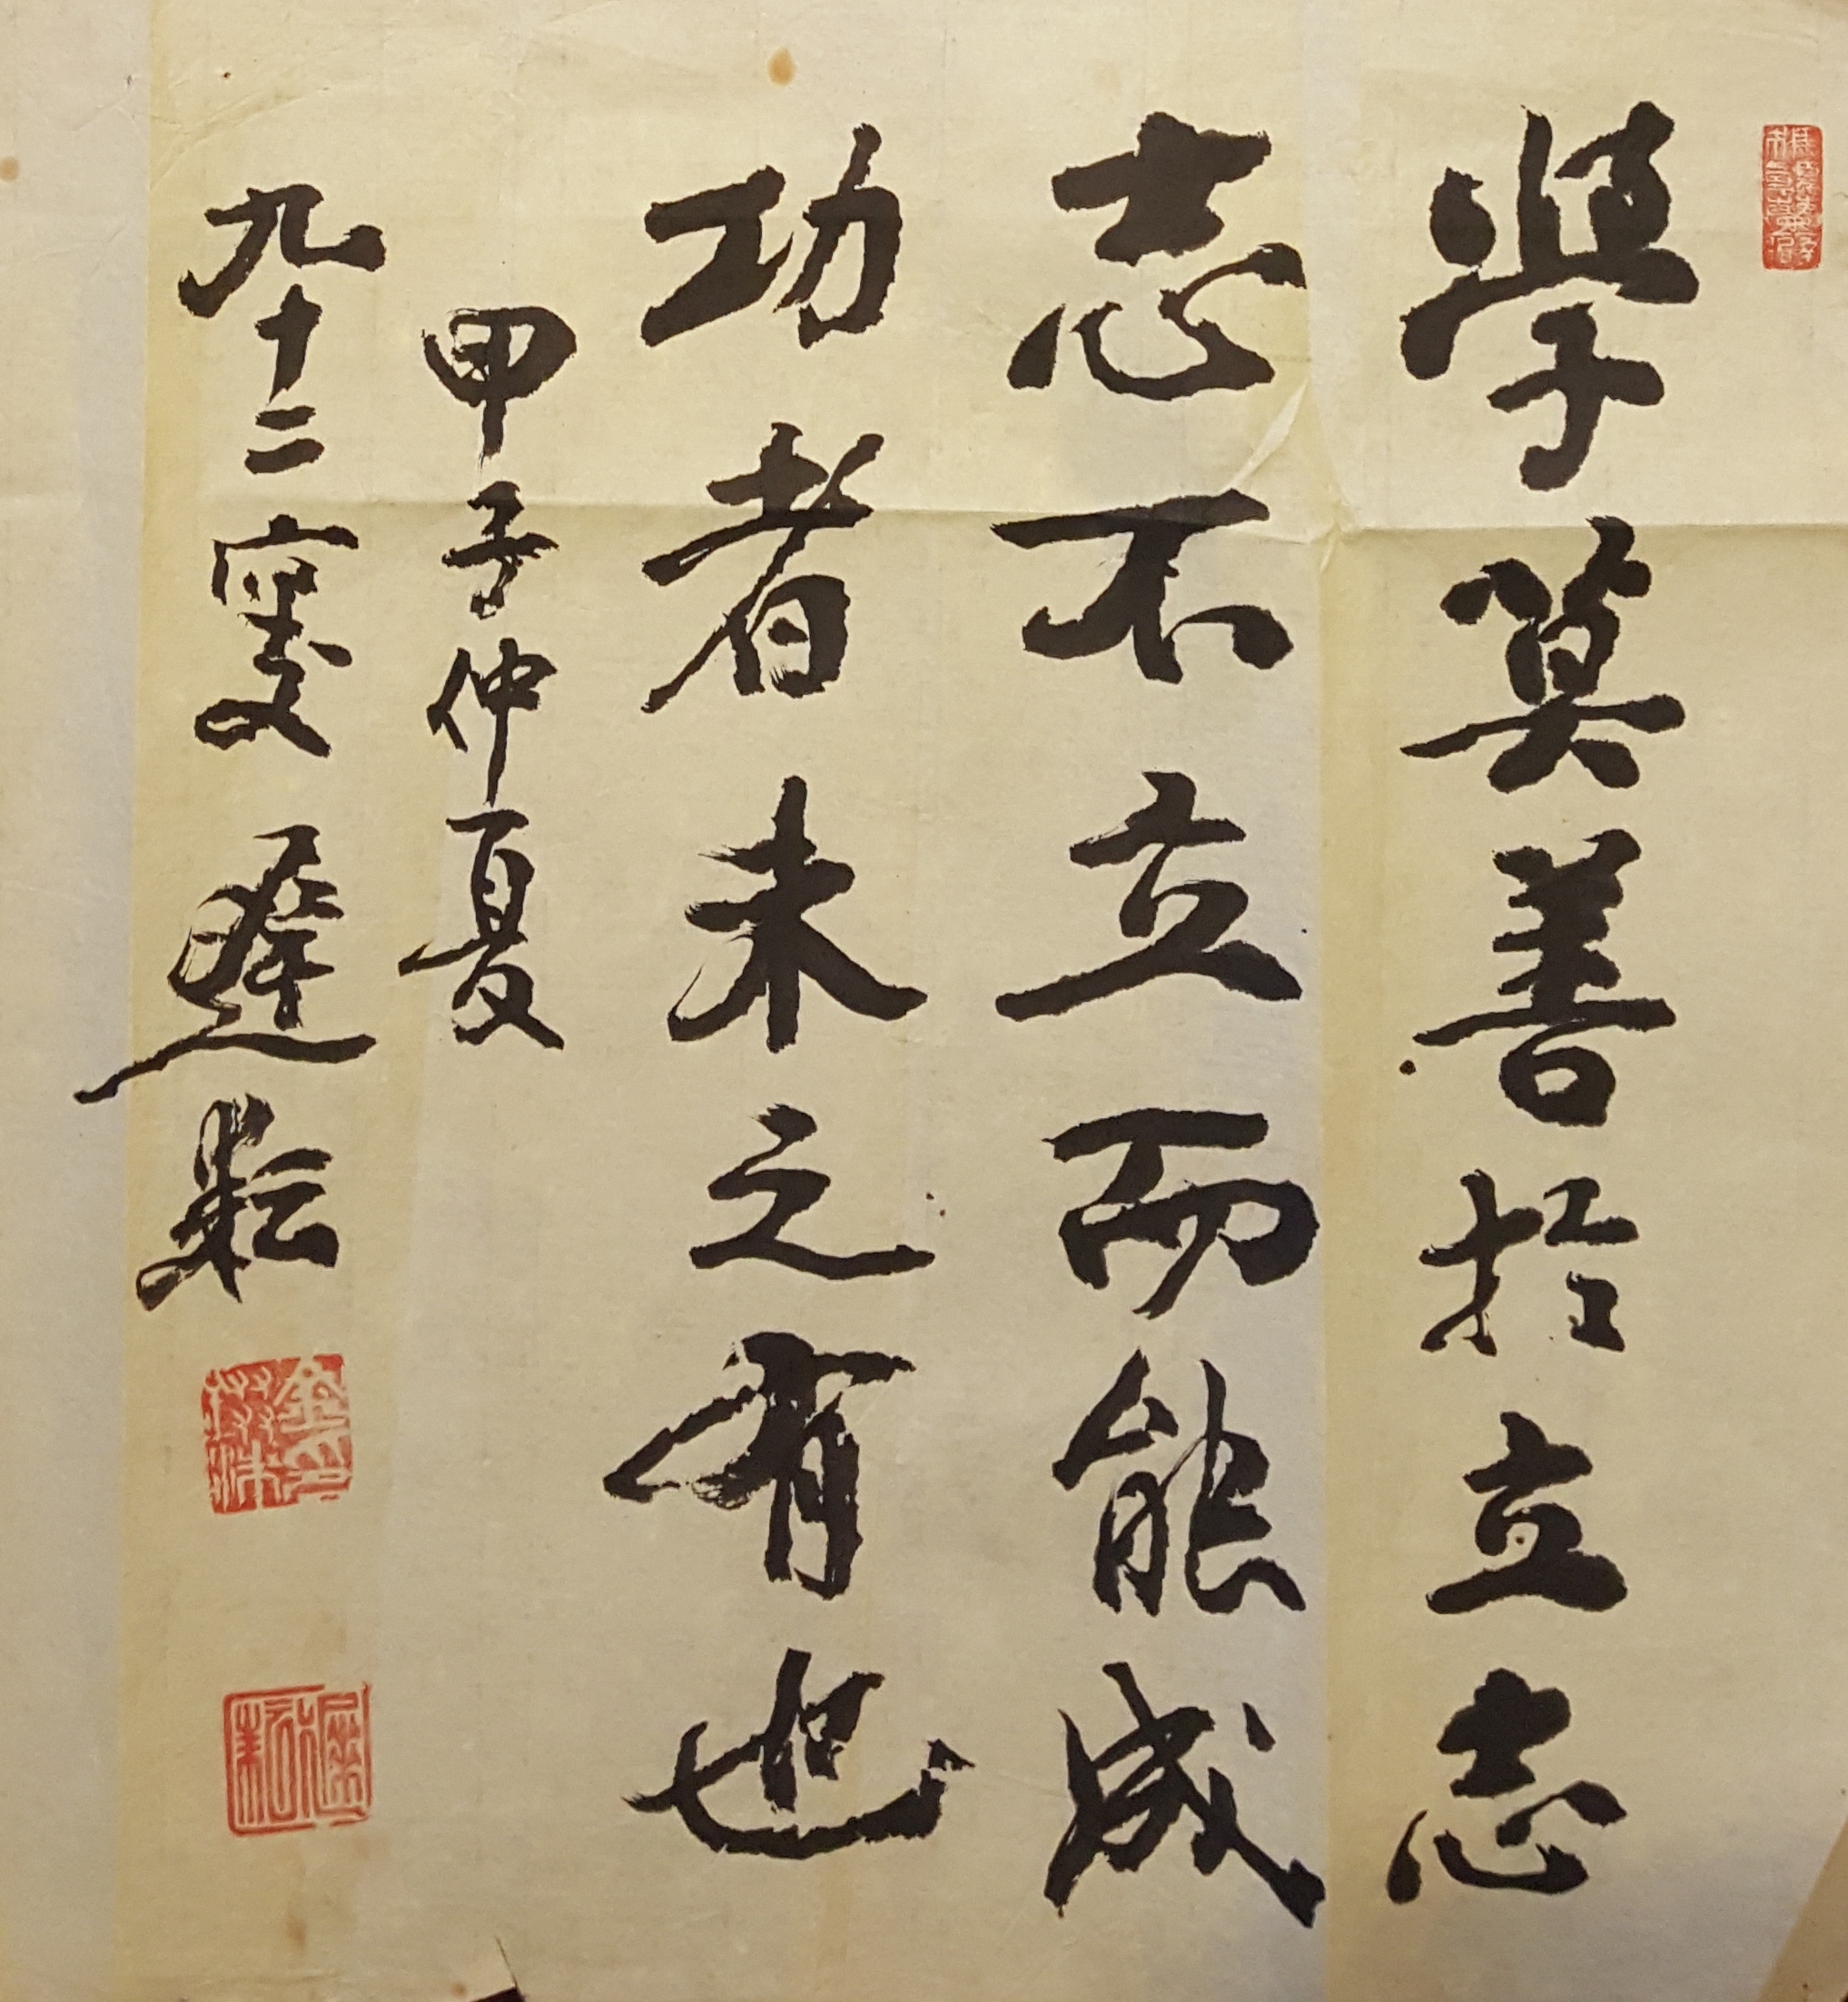 學莫善於立志
志不立而能成
功者未之有也
甲子仲夏
九十二叟墀耘